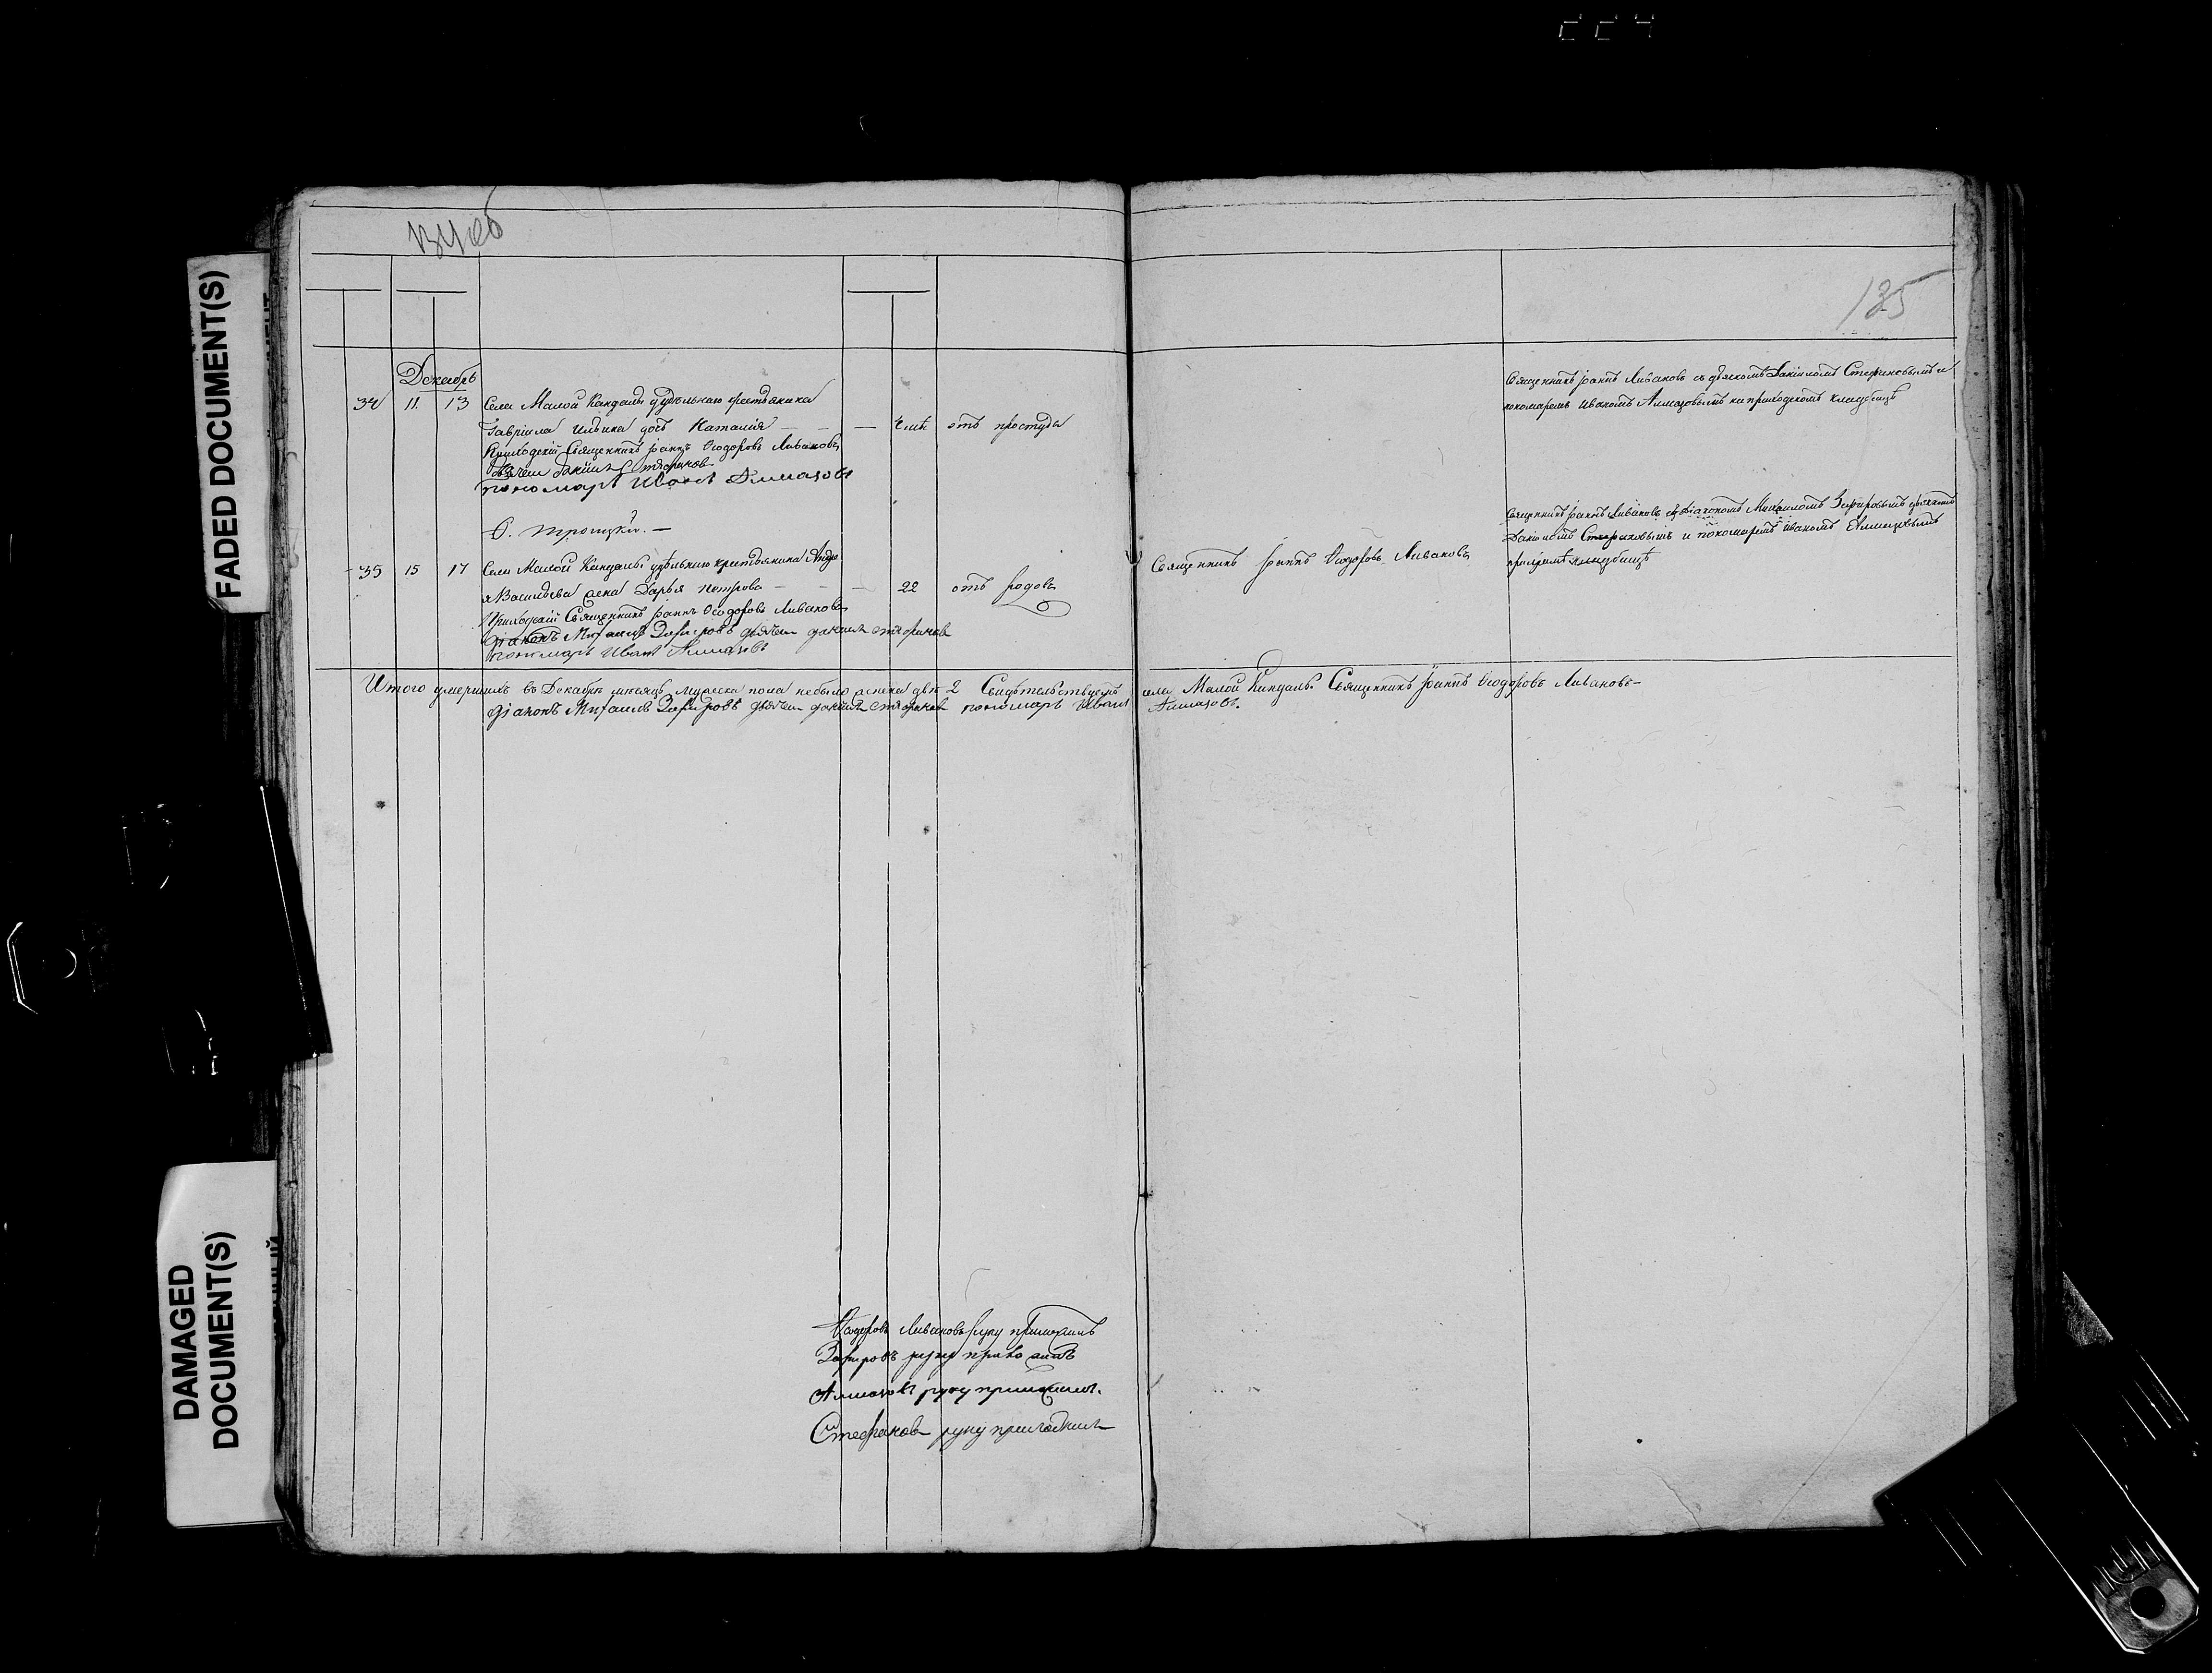 224
FADED DOCUMENT(S)
DAMAGED
DOCUMENT(S)
135
Декабрь
34 11. 13 Села Малой Кандалы удѣльнаго крестьянина
Гавріила Ильина дочь Наталія — — — 4 мѣ отъ простуды
Приходскій Священникъ Іоаннъ Ѳеодоровъ Ливановъ
Дьячекъ Даніилъ Стефановъ
пономарь Иванъ Алмазовъ
Священникъ Іоаннъ Ливановъ съ дьячкомъ Даніиломъ Стефановымъ и
пономаремъ Иваномъ Алмазовымъ на приходскомъ кладбищѣ
35 15 17 Села Малой Кандалы удѣльнаго крестьянина Андре
я Васильева жена Дарья Петрова — — 22 отъ родовъ
Приходскій Священникъ Іоаннъ Ѳеодоровъ Ливановъ
Діаконъ Михаилъ Зефировъ дьячекъ Даніилъ Стефановъ
пономарь Иванъ Алмазовъ
Священникъ Іоаннъ Ѳеодоровъ Ливановъ
Священникъ Іоаннъ Ливановъ съ Діакономъ Михаиломъ Зефировымъ дьячкомъ
Даніиломъ Стефановымъ и пономаремъ Иваномъ Алмазовымъ
кладбищѣ
Итого умершихъ въ Декабрѣ мѣсяцѣ мужеска пола небыло женска двѣ 2 Свидѣтельствуетъ села Малой Кандалы Священникъ Іоаннъ Ѳеодоровъ Ливановъ —
Діаконъ Михаилъ Зефировъ дьячекъ Даніилъ Стефановъ пономарь Иванъ Алмазовъ.
Ѳеодоровъ Ливановъ руку приложилъ
Зефировъ руку приложилъ
Алмазовъ руку приложилъ.
Стефановъ руку приложилъ